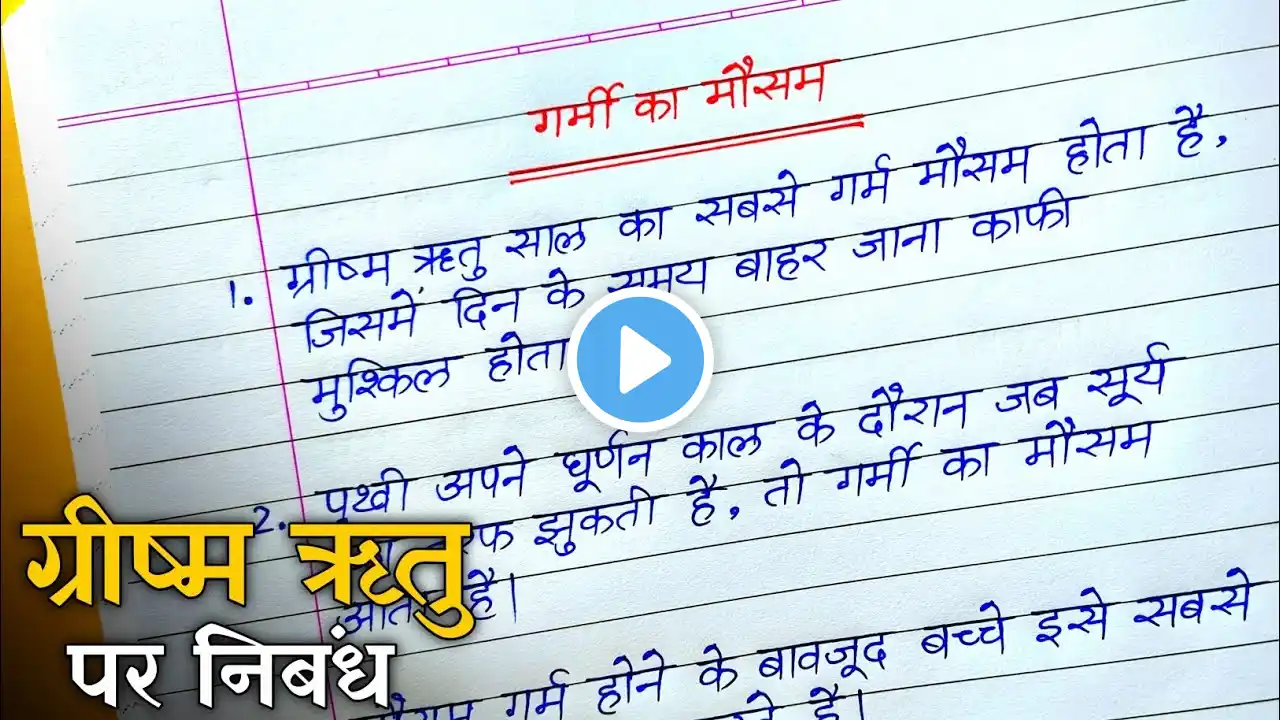 गर्मी का मौसम
1. ग्रीष्म ऋतु साल का सबसे गर्म मौसम होता है,
जिसमें दिन के समय बाहर जाना काफी
मुश्किल होता
2. पृथ्वी अपने घूर्णन काल के दौरान जब सूर्य
झुकती है, तो गर्मी का मौसम
है।
गर्म होने के बावजूद बच्चे इसे सबसे
है।
ग्रीष्म ऋतु
पर निबंध